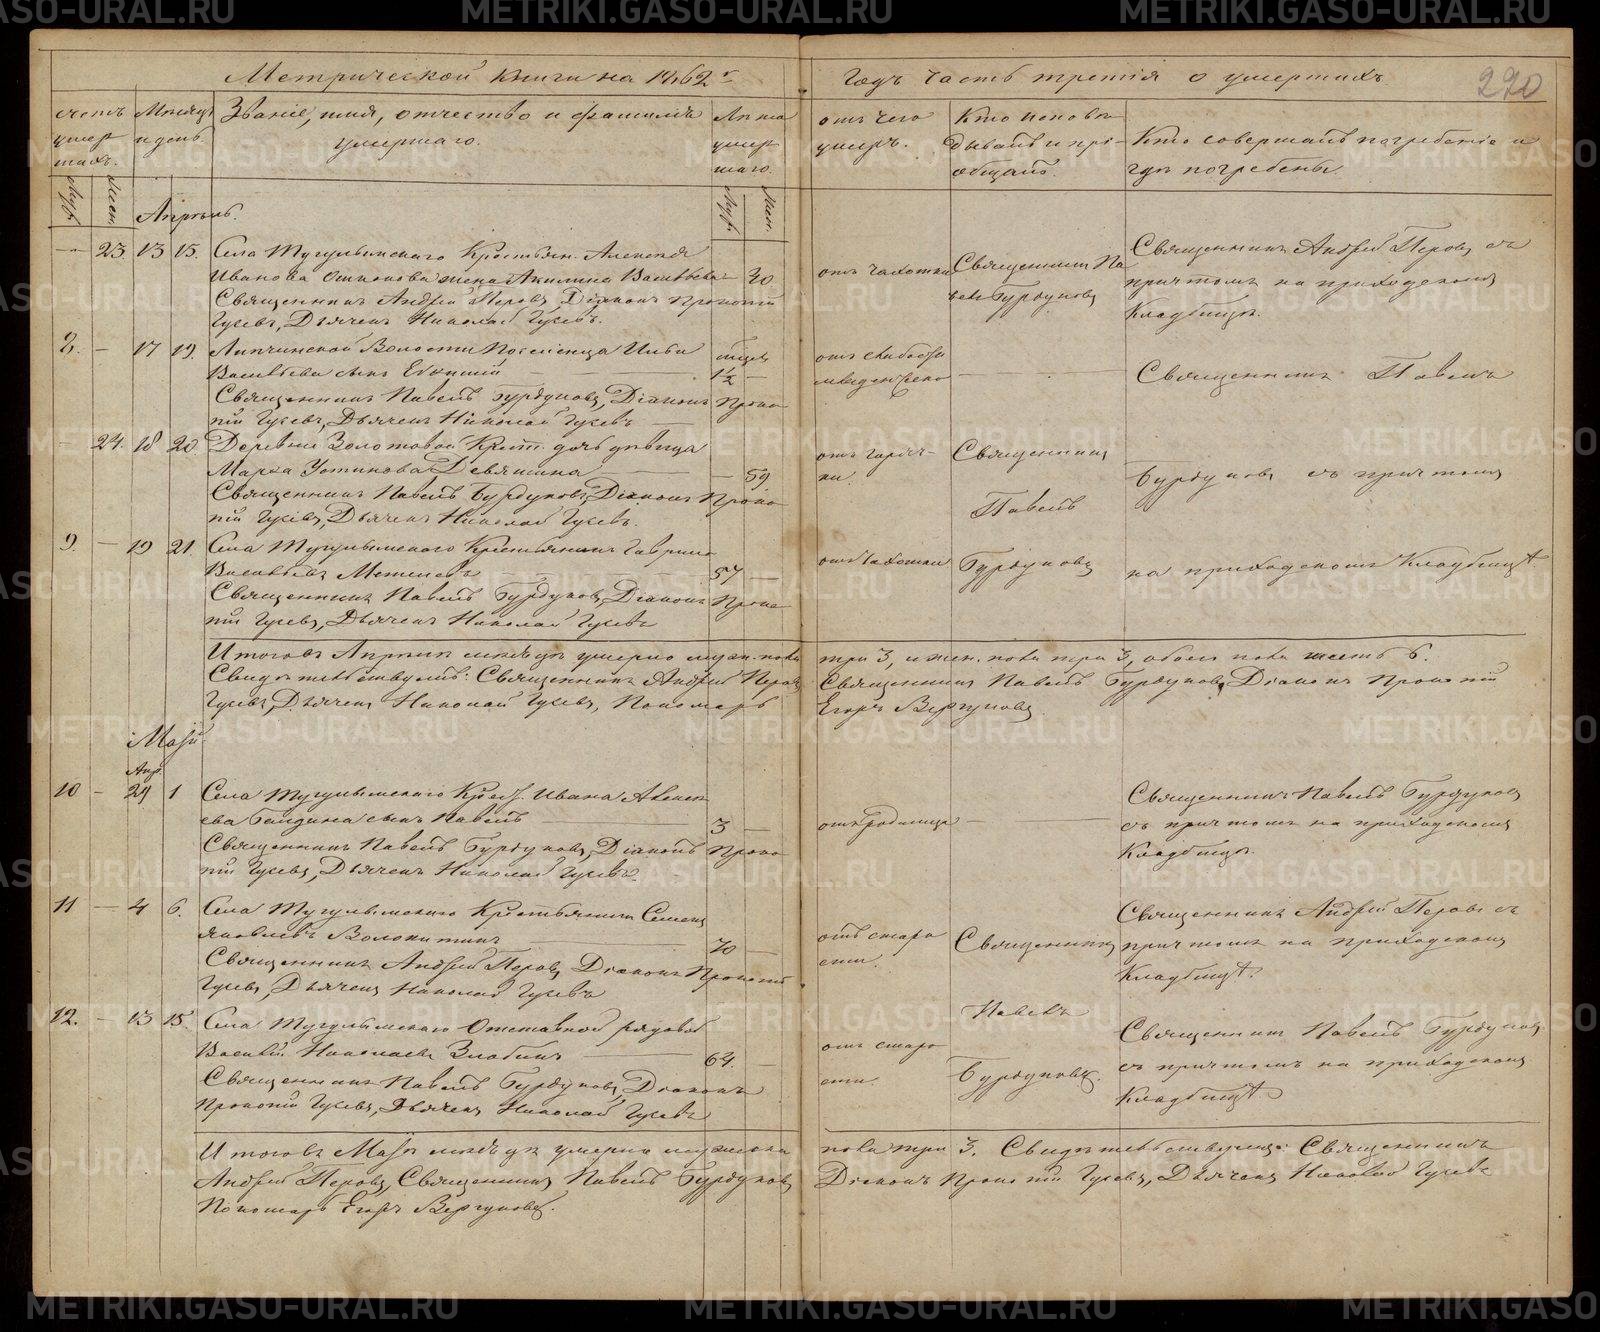 Метрической книги на 1862 г
годъ часть третія о умершихъ
220
счетъ умер шихъ.
Муж.
Жен.
Мѣсяцъ и день.
Званіе, имя, отчество и фамилія
умершаго.
Лѣта умер шаго.
Муж.
Жен.
отъ чего умеръ.
Кто исповѣ дывалъ и прі- общалъ.
Кто совершалъ погребеніе и
гдѣ погребены.
Апрѣль.
— 23. 13 15. Села Тугулымскаго Крестьян. Алексѣя
Иванова жена Акилина Васильева — 30.
Священникъ Андрей Перовъ, Діаконъ Прокопій
Гусевъ, Дьячекъ Николай Гусевъ.
отъ чахотки
Священникъ Па велъ Бурдуковъ
Священникъ Андрей Перовъ съ
причтомъ на приходскомъ
Кладбищѣ.
— 17 19. Липчинской Волости Поселенца
Васильева сынъ 1½ —
Священникъ Павелъ Бурдуковъ, Діаконъ Проко
пій Гусевъ, Дьячекъ Николай Гусевъ —
отъ слабости
младенческо
Священникъ Павелъ
— 24. 18 20. Деревни Золотовой Крест. дочь дѣвица
Марѳа Устинова Девяткина — 59.
Священникъ Павелъ Бурдуковъ, Діаконъ Проко
пій Гусевъ, Дьячекъ Николай Гусевъ.
отъ горяч- ки.
Священникъ
Павелъ
Бурдуковъ съ причтомъ
9. — 19 21. Села Тугулымскаго Крестьянинъ Гаврило
Васильевъ 57 —
Священникъ Павелъ Бурдуковъ, Діаконъ Проко
пій Гусевъ, Дьячекъ Николай Гусевъ
отъ чахотки
Бурдуковъ
на приходскомъ Кладбищѣ.
Итого въ Апрѣлѣ мѣсяцѣ умерло муж. пола три 3, и жен. пола три 3, обоего пола шесть 6.
Свидѣтельствуютъ: Священникъ Андрей Перовъ, Священникъ Павелъ Бурдуковъ, Діаконъ Прокопій
Гусевъ, Дьячекъ Николай Гусевъ, Пономарь Егоръ Вергуновъ
Май.
Апр.
10 — 29 1 Села Тугулымскаго Крест. Ивана Алексѣ
ева сынъ Павелъ 3 —
Священникъ Павелъ Бурдуковъ, Діаконъ Проко
пій Гусевъ, Дьячекъ Николай Гусевъ.
отъ родимца
Священникъ Павелъ Бурдуковъ
съ причтомъ на приходскомъ
Кладбищѣ.
11 — 4 6. Села Тугулымскаго Крестьянинъ Семенъ
Яковлевъ Волокитинъ 70 —
Священникъ Андрей Перовъ, Діаконъ Прокопій
Гусевъ, Дьячекъ Николай Гусевъ
отъ старо сти.
Священникъ
Священникъ Андрей Перовъ съ
причтомъ на приходскомъ
Кладбищѣ.
12. — 13 15. Села Тугулымскаго Отставной рядовой
Василій Николаевъ Злобинъ 64. —
Священникъ Павелъ Бурдуковъ, Діаконъ
Прокопій Гусевъ, Дьячекъ Николай Гусевъ
отъ старо сти.
Павелъ
Бурдуковъ.
Священникъ Павелъ Бурдуковъ
съ причтомъ на приходскомъ
Кладбищѣ.
Итого въ Маѣ мѣсяцѣ умерло мужескаго пола три 3. Свидѣтельствуютъ: Священникъ
Андрей Перовъ, Священникъ Павелъ Бурдуковъ, Діаконъ Прокопій Гусевъ, Дьячекъ Николай Гусевъ
Пономарь Егоръ Вергуновъ.
METRIKI.GASO-URAL.RU